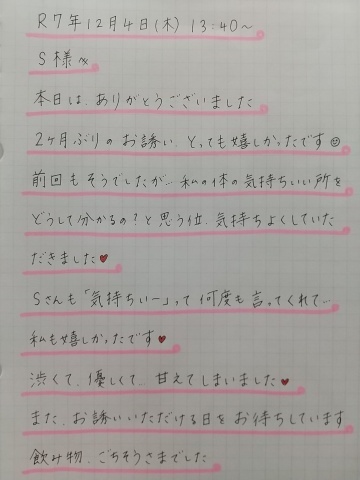 R7年12月4日(木) 13:40～
S様へ
本日は、ありがとうございました
2ヶ月ぶりのお誘い、とっても嬉しかったです☺
前回もそうでしたが…私の体の気持ちいい所を
どうして分かるの？と思う位、気持ちよくしていた
だきました♥
Sさんも「気持ちいー」って何度も言ってくれて…
私も嬉しかったです♥
渋くて、優しくて、甘えてしまいました♥
また、お誘いいただける日をお待ちしています
飲み物、ごちそうさまでした